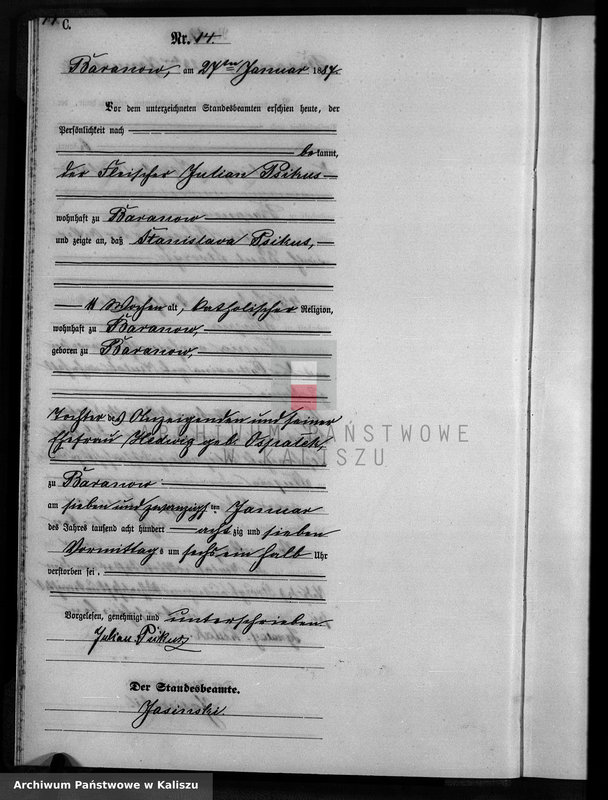 C.
Nr. 14.
Baranow, am 27ten Januar 1887.
Vor dem unterzeichneten Standesbeamten erschien heute, der
Persönlichkeit nach
bekannt,
der Fleischer Julian Psikus
wohnhaft zu Baranow
und zeigte an, daß Stanislava Psikus,
11 Wochen alt, katholischer Religion,
wohnhaft zu Baranow,
geboren zu Baranow,
Tochter des Anzeigenden und seiner
Ehefrau Hedwig geb. Ospalek,
zu Baranow
am sieben und zwanzigsten Januar
des Jahres tausend acht hundert achtzig und sieben
Vormittags um sechs ein halb Uhr
verstorben sei.
Vorgelesen, genehmigt und unterschrieben
Julian
Der Standesbeamte.
Jasinski
ARCHIWUM PAŃSTWOWE
W KALISZU
Archiwum Państwowe w Kaliszu